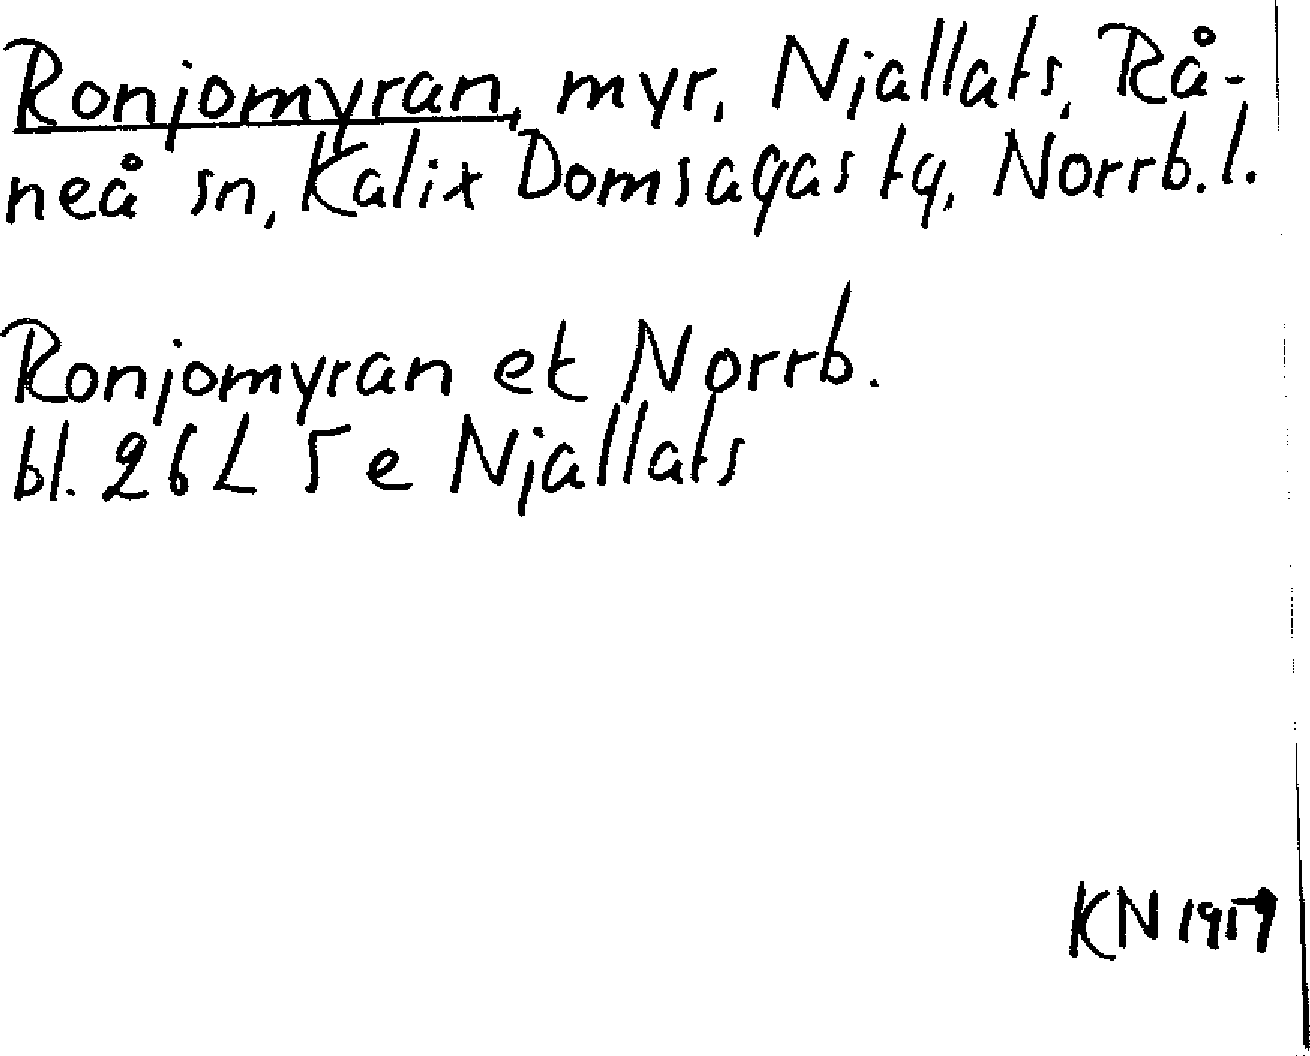 Ronjomyran, myr, Njallats, Rå-
neå sn, Kalix Domsagas tg, Norrb. l.
Ronjomyran et Norrb.
bl. 26 L 5 e Njallats
KN 1959